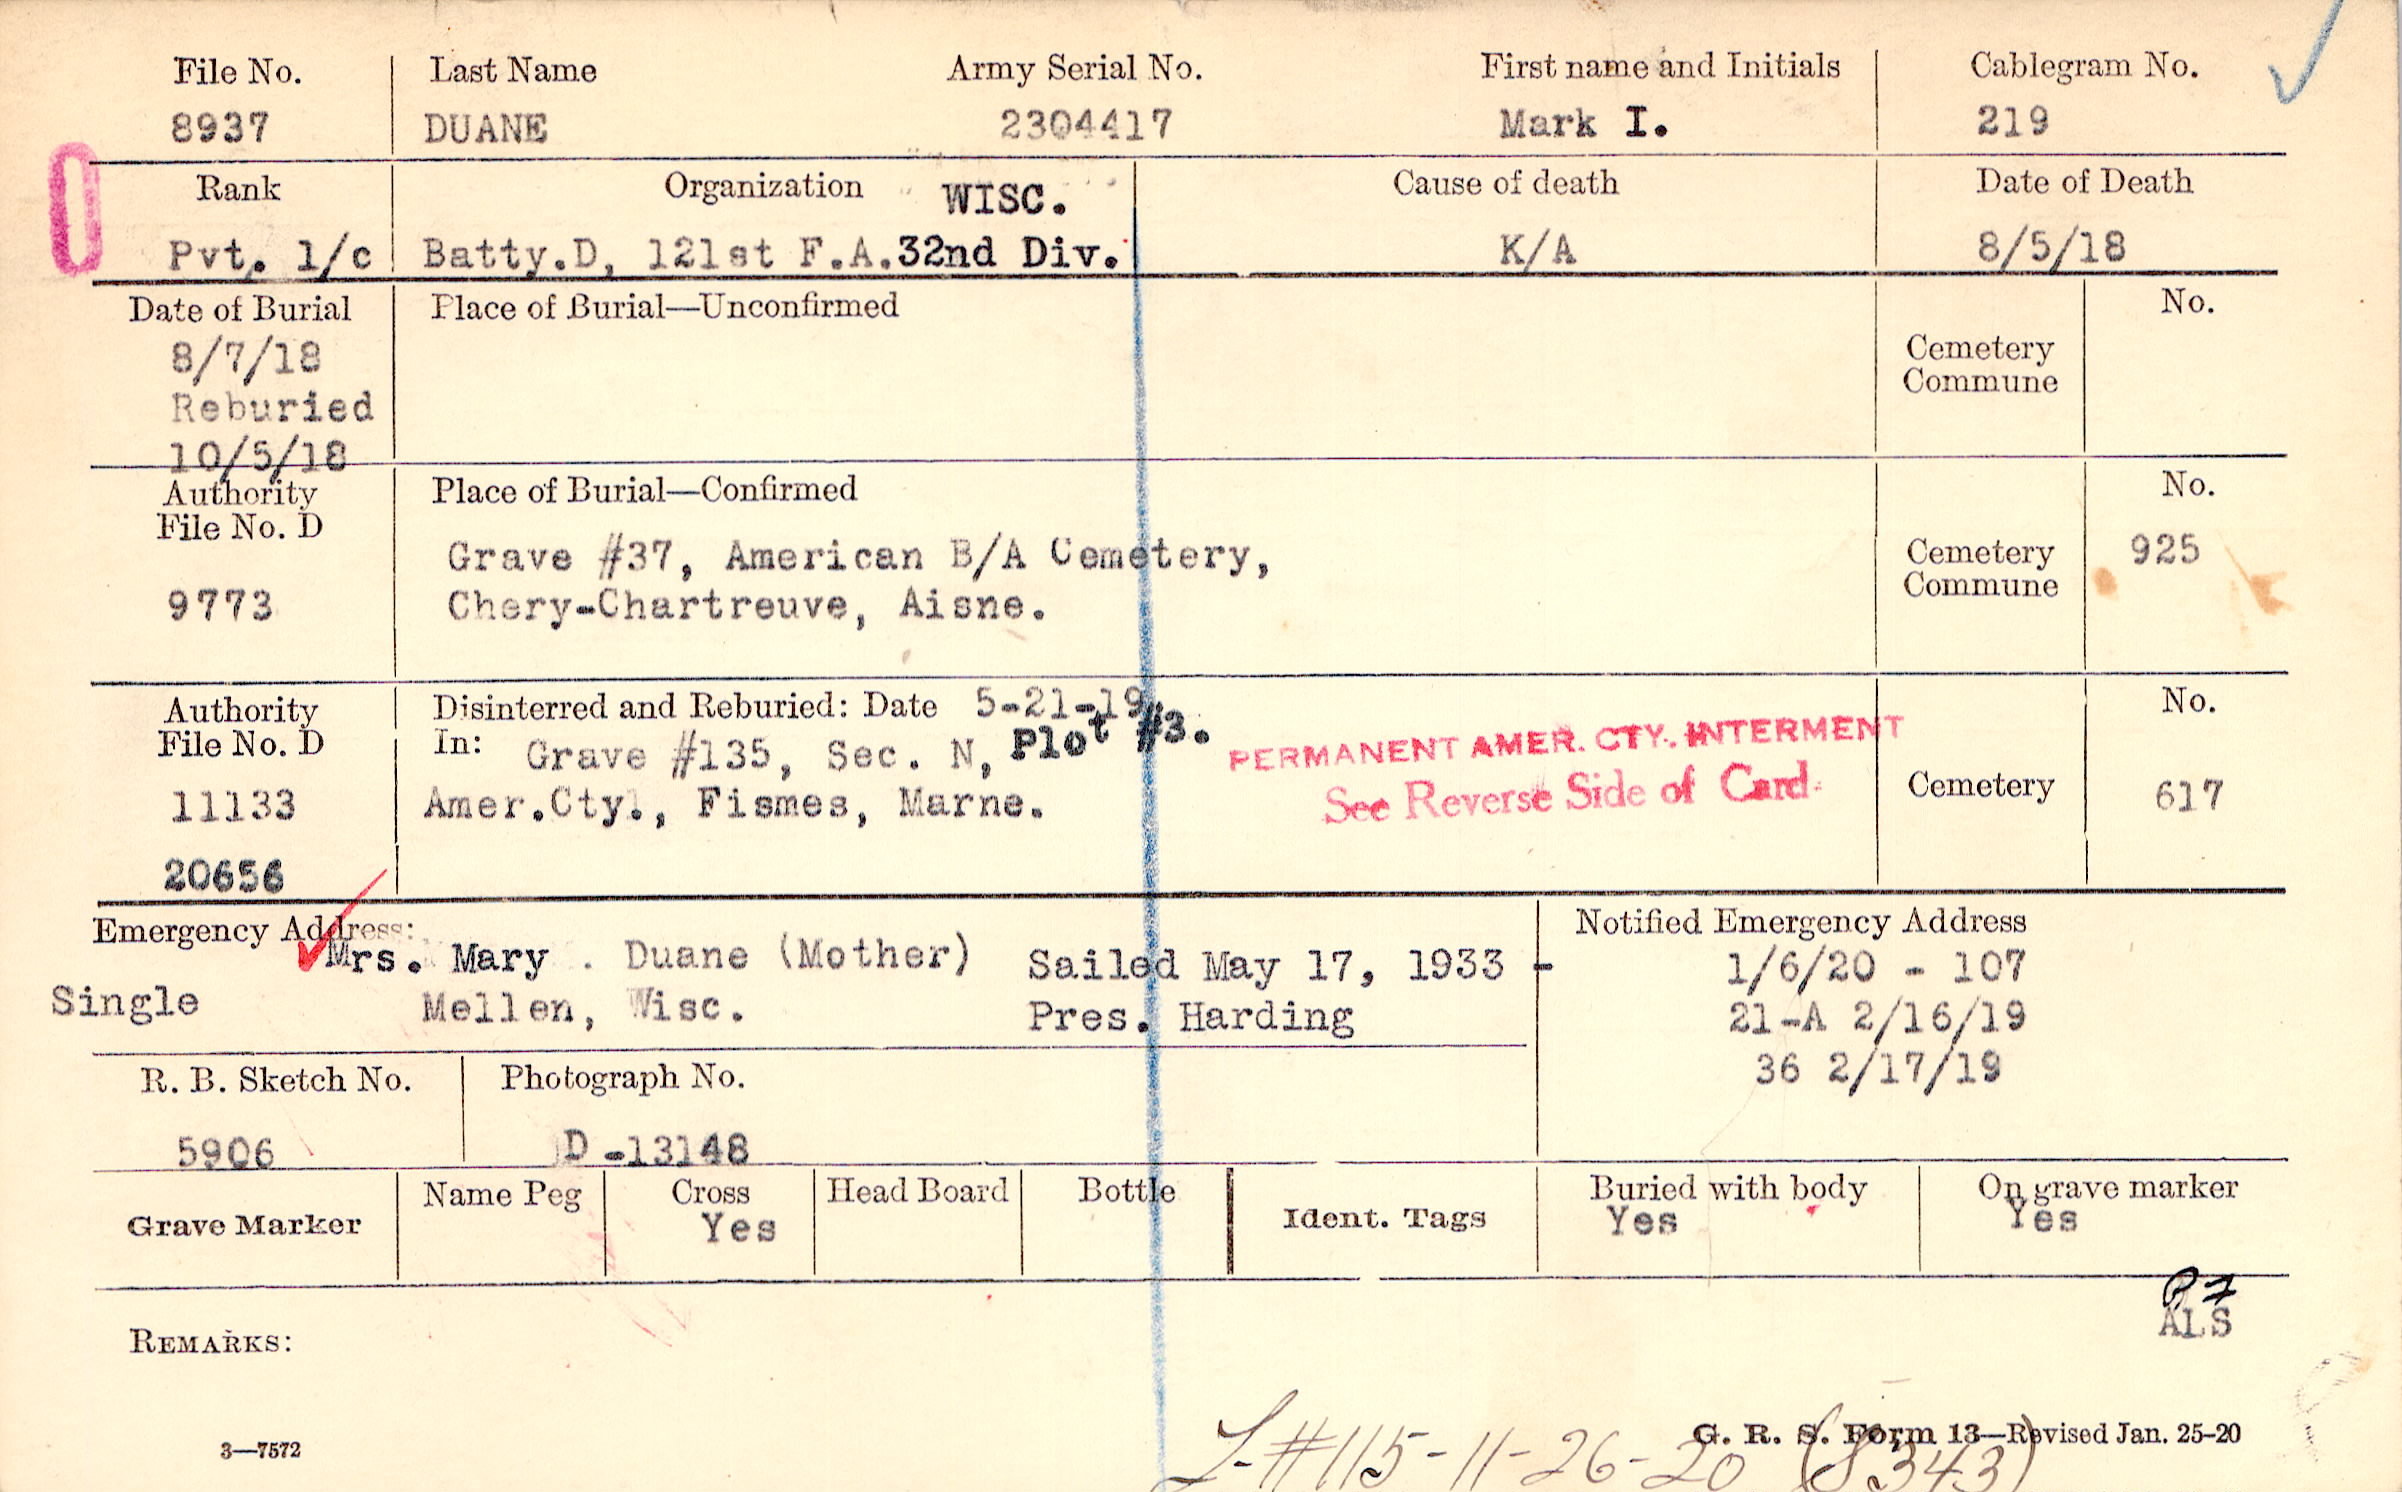 File No. Last Name Army Serial No. First name and Initials Cablegram No.
8937 DUANE 2304417 Mark I. 219
Rank Organization WISC. Cause of death Date of Death
Pvt. 1/c Batty.D, 121st F.A.32nd Div. K/A 8/5/18
Date of Burial Place of Burial—Unconfirmed No.
8/7/18 Cemetery
Commune
Reburied
10/5/18
Authority Place of Burial—Confirmed No.
File No. D
Grave #37, American B/A Cemetery, Cemetery 925
Commune
9773 Chery-Chartreuve, Aisne.
Authority Disinterred and Reburied: Date 5-21-19. No.
File No. D In: Grave #135, Sec. N, Plot #3. PERMANENT AMER. CTY. INTERMENT
11133 Amer.Cty., Fismes, Marne. See Reverse Side of Card. Cemetery 617
20656
Emergency Address: Notified Emergency Address
Mrs. Mary . Duane (Mother) Sailed May 17, 1933 - 1/6/20 - 107
Single Mellen, Wisc. Pres. Harding 21-A 2/16/19
36 2/17/19
R. B. Sketch No. Photograph No.
5906 D -13148
Grave Marker Name Peg Cross Head Board Bottle Ident. Tags Buried with body On grave marker
Yes Yes Yes
ALS
REMARKS:
3—7572 G. R. S. Form 13—Revised Jan. 25-20
L-#115-11-26-20 (S343)